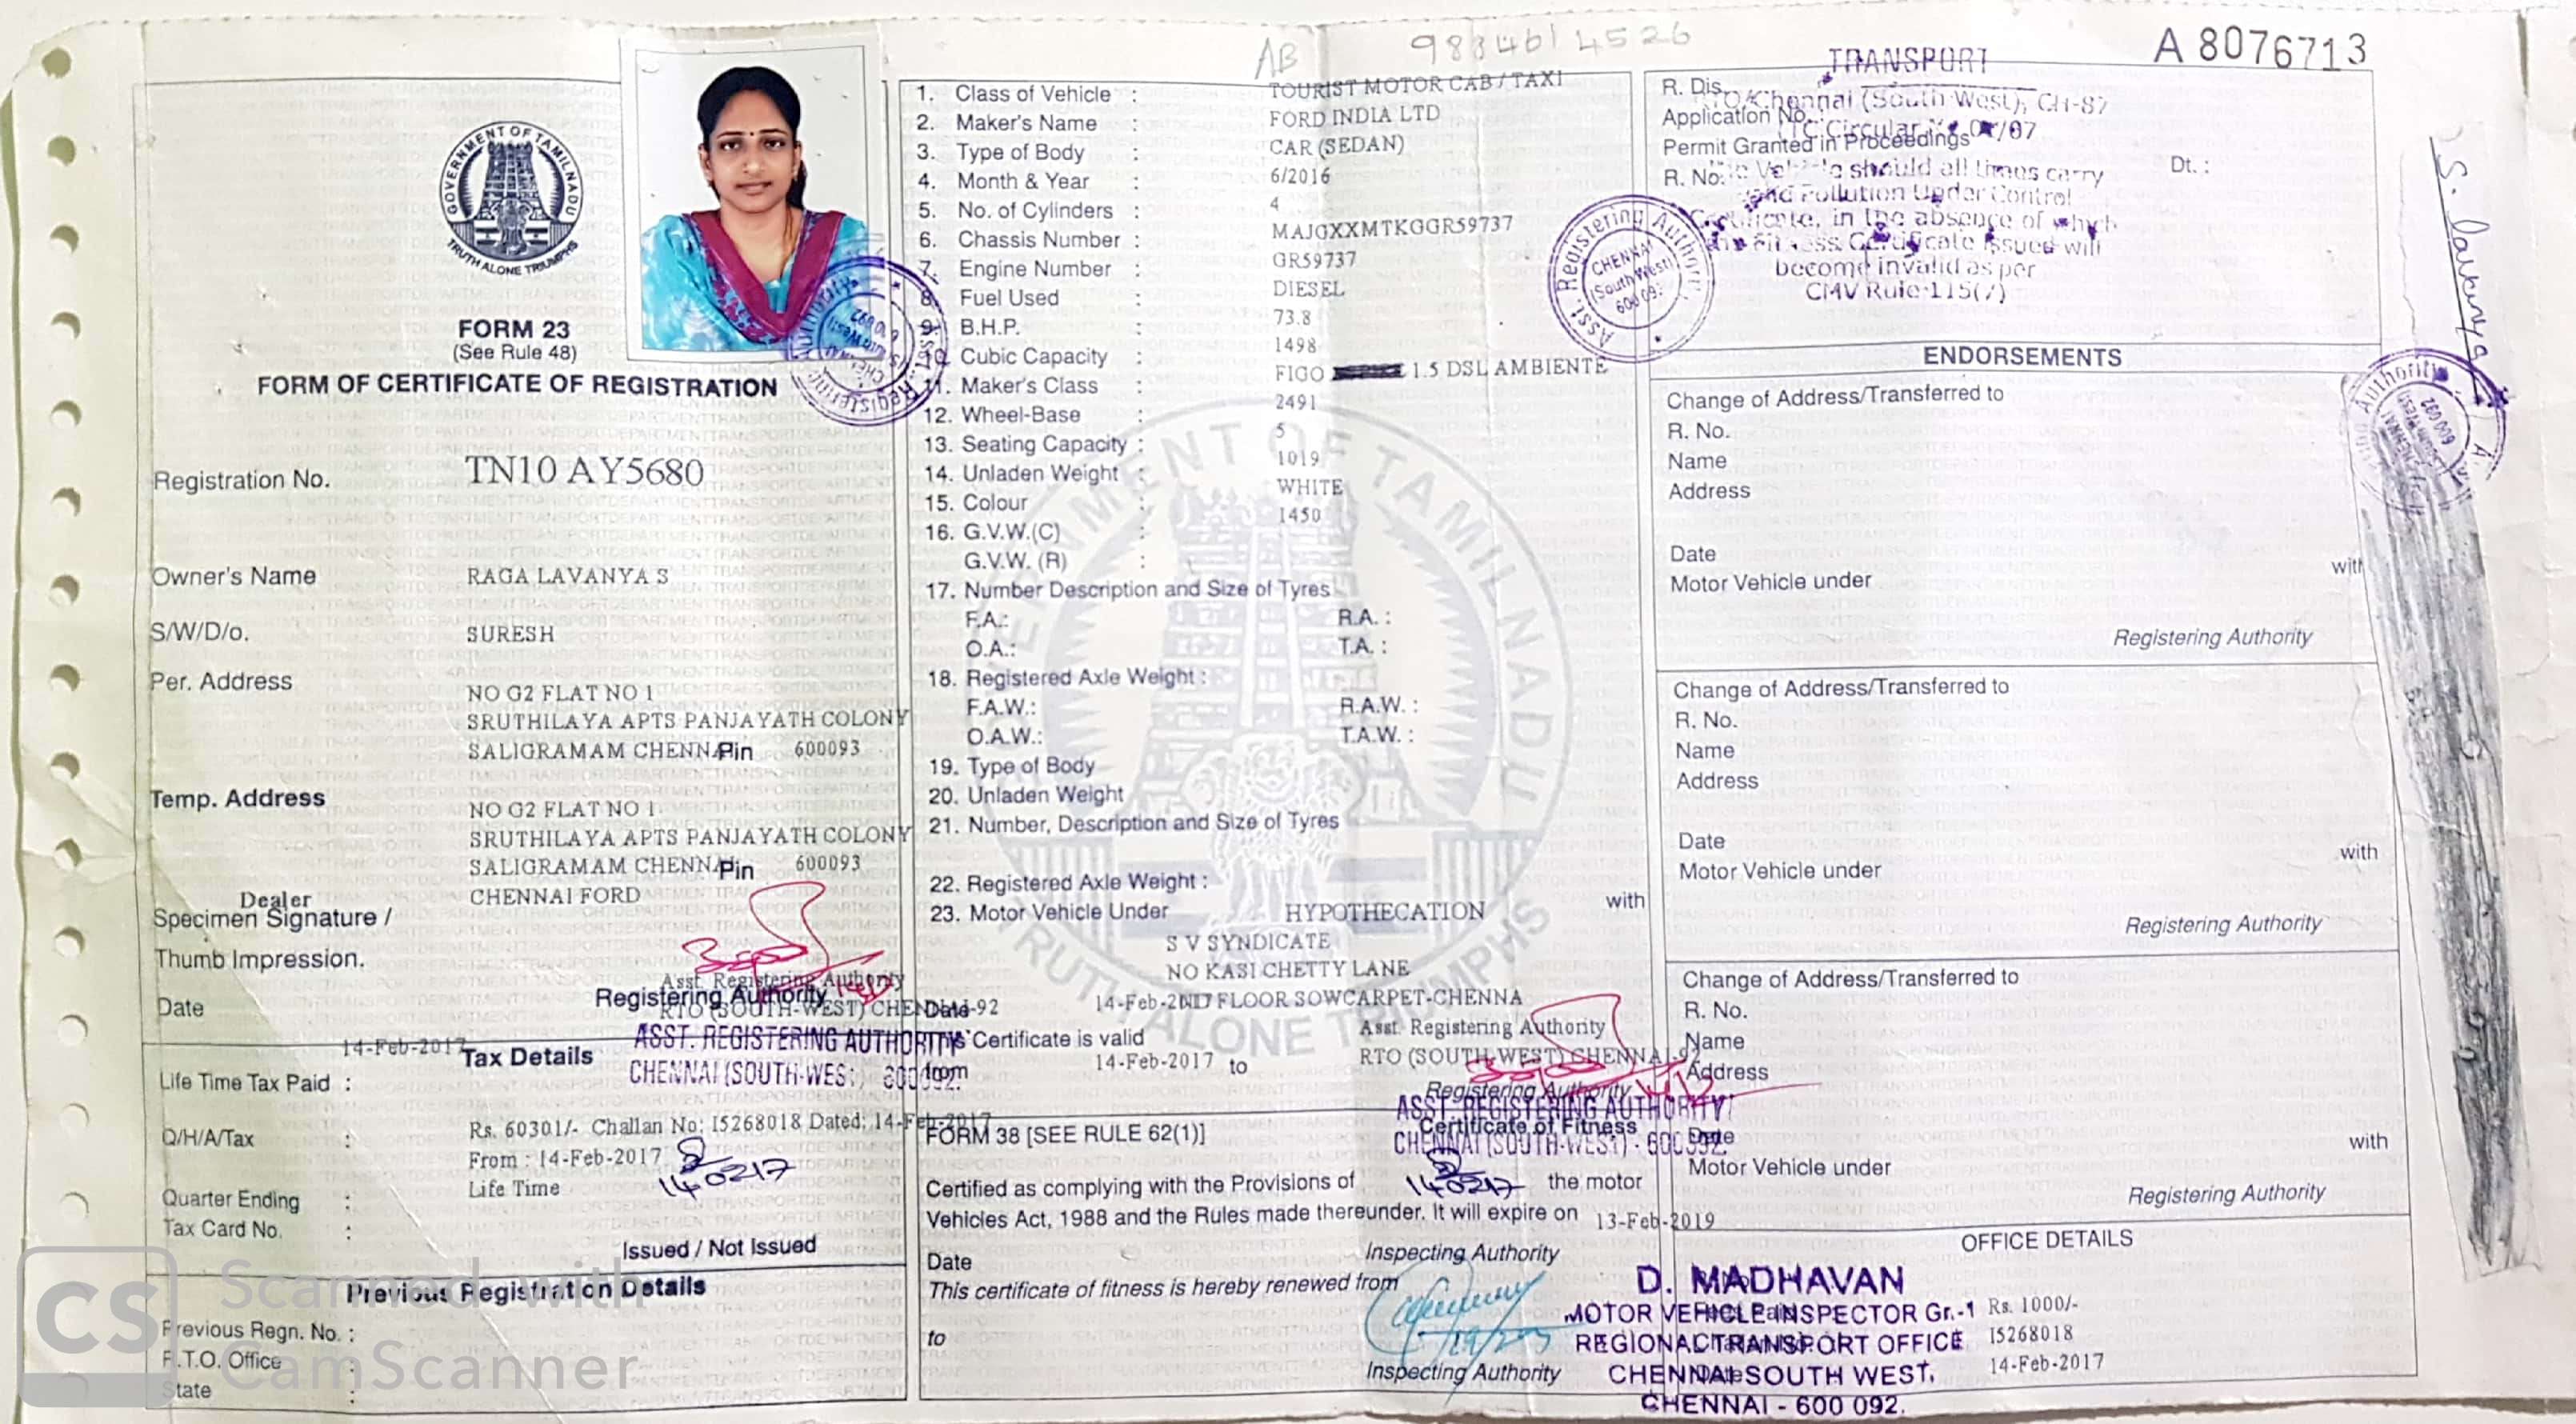 AB 9884614526
A 8076713
GOVERNMENT OF TAMILNADU
TRUTH ALONE TRIUMPHS
FORM 23
(See Rule 48)
FORM OF CERTIFICATE OF REGISTRATION
Registration No. TN10 AY5680
Owner's Name RAGA LAVANYA S
S/W/D/o. SURESH
Per. Address NO G2 FLAT NO 1
SRUTHILAYA APTS PANJAYATH COLONY
SALIGRAMAM CHENNA Pin 600093
Temp. Address NO G2 FLAT NO 1
SRUTHILAYA APTS PANJAYATH COLONY
SALIGRAMAM CHENNA Pin 600093
Dealer CHENNAI FORD
Specimen Signature /
Thumb Impression.
Asst. Registering Authority
Registering Authority
RTO (SOUTH-WEST) CHENNAI-92
Date 14-Feb-2017
ASST. REGISTERING AUTHORITY
CHENNAI (SOUTH-WEST) 600092.
Tax Details
Life Time Tax Paid :
Q/H/A/Tax : Rs. 60301/- Challan No: I5268018 Dated: 14-Feb-2017
From : 14-Feb-2017
Life Time
140217
Quarter Ending :
Tax Card No. :
Issued / Not Issued
Previous Registration Details
Previous Regn. No. :
R.T.O. Office :
State :
CS Scanned with
CamScanner
1. Class of Vehicle : TOURIST MOTOR CAB / TAXI
2. Maker's Name : FORD INDIA LTD
3. Type of Body : CAR (SEDAN)
4. Month & Year : 6/2016
5. No. of Cylinders : 4
6. Chassis Number : MAJGXXMTKGGR59737
7. Engine Number : GR59737
8. Fuel Used : DIESEL
9. B.H.P. : 73.8
10. Cubic Capacity : 1498
11. Maker's Class : FIGO 1.5 DSL AMBIENTE
12. Wheel-Base : 2491
13. Seating Capacity : 5
14. Unladen Weight : 1019
15. Colour : WHITE
16. G.V.W.(C) : 1450
G.V.W. (R) :
17. Number Description and Size of Tyres
F.A.: R.A. :
O.A.: T.A. :
18. Registered Axle Weight :
F.A.W.: R.A.W. :
O.A.W.: T.A.W. :
19. Type of Body
20. Unladen Weight
21. Number, Description and Size of Tyres
22. Registered Axle Weight :
23. Motor Vehicle Under HYPOTHECATION with
S V SYNDICATE
NO KASI CHETTY LANE
Date 14-Feb-2017 FLOOR SOWCARPET-CHENNA
This Certificate is valid
from 14-Feb-2017 to
Asst. Registering Authority
RTO (SOUTH WEST) CHENNAI-92
Registering Authority
ASST. REGISTERING AUTHORITY
CHENNAI (SOUTH-WEST) - 600092.
FORM 38 [SEE RULE 62(1)] Certificate of Fitness
Certified as complying with the Provisions of 140217 the motor
Vehicles Act, 1988 and the Rules made thereunder. It will expire on 13-Feb-2019
Date Inspecting Authority
This certificate of fitness is hereby renewed from
to
Inspecting Authority
TRANSPORT
R. Dis.
RTO/Chennai (South West), CH-87
Application No.
Permit Granted in Proceedings
R. No. Dt. :
Vehicle should all times carry
Pollution Under Control
Certificate, in the absence of which
Fitness Certificate issued will
become invalid as per
CMV Rule 115(7)
Asst. Registering Authority
CHENNAI
(South West)
600 092
ENDORSEMENTS
Change of Address/Transferred to
R. No.
Name
Address
Date
Motor Vehicle under with
Registering Authority
Change of Address/Transferred to
R. No.
Name
Address
Date
Motor Vehicle under with
Registering Authority
Change of Address/Transferred to
R. No.
Name
Address
Date
Motor Vehicle under with
Registering Authority
OFFICE DETAILS
D. MADHAVAN
MOTOR VEHICLE INSPECTOR Gr.-1 Rs. 1000/-
REGIONAL TRANSPORT OFFICE I5268018
CHENNAI SOUTH WEST, 14-Feb-2017
CHENNAI - 600 092.